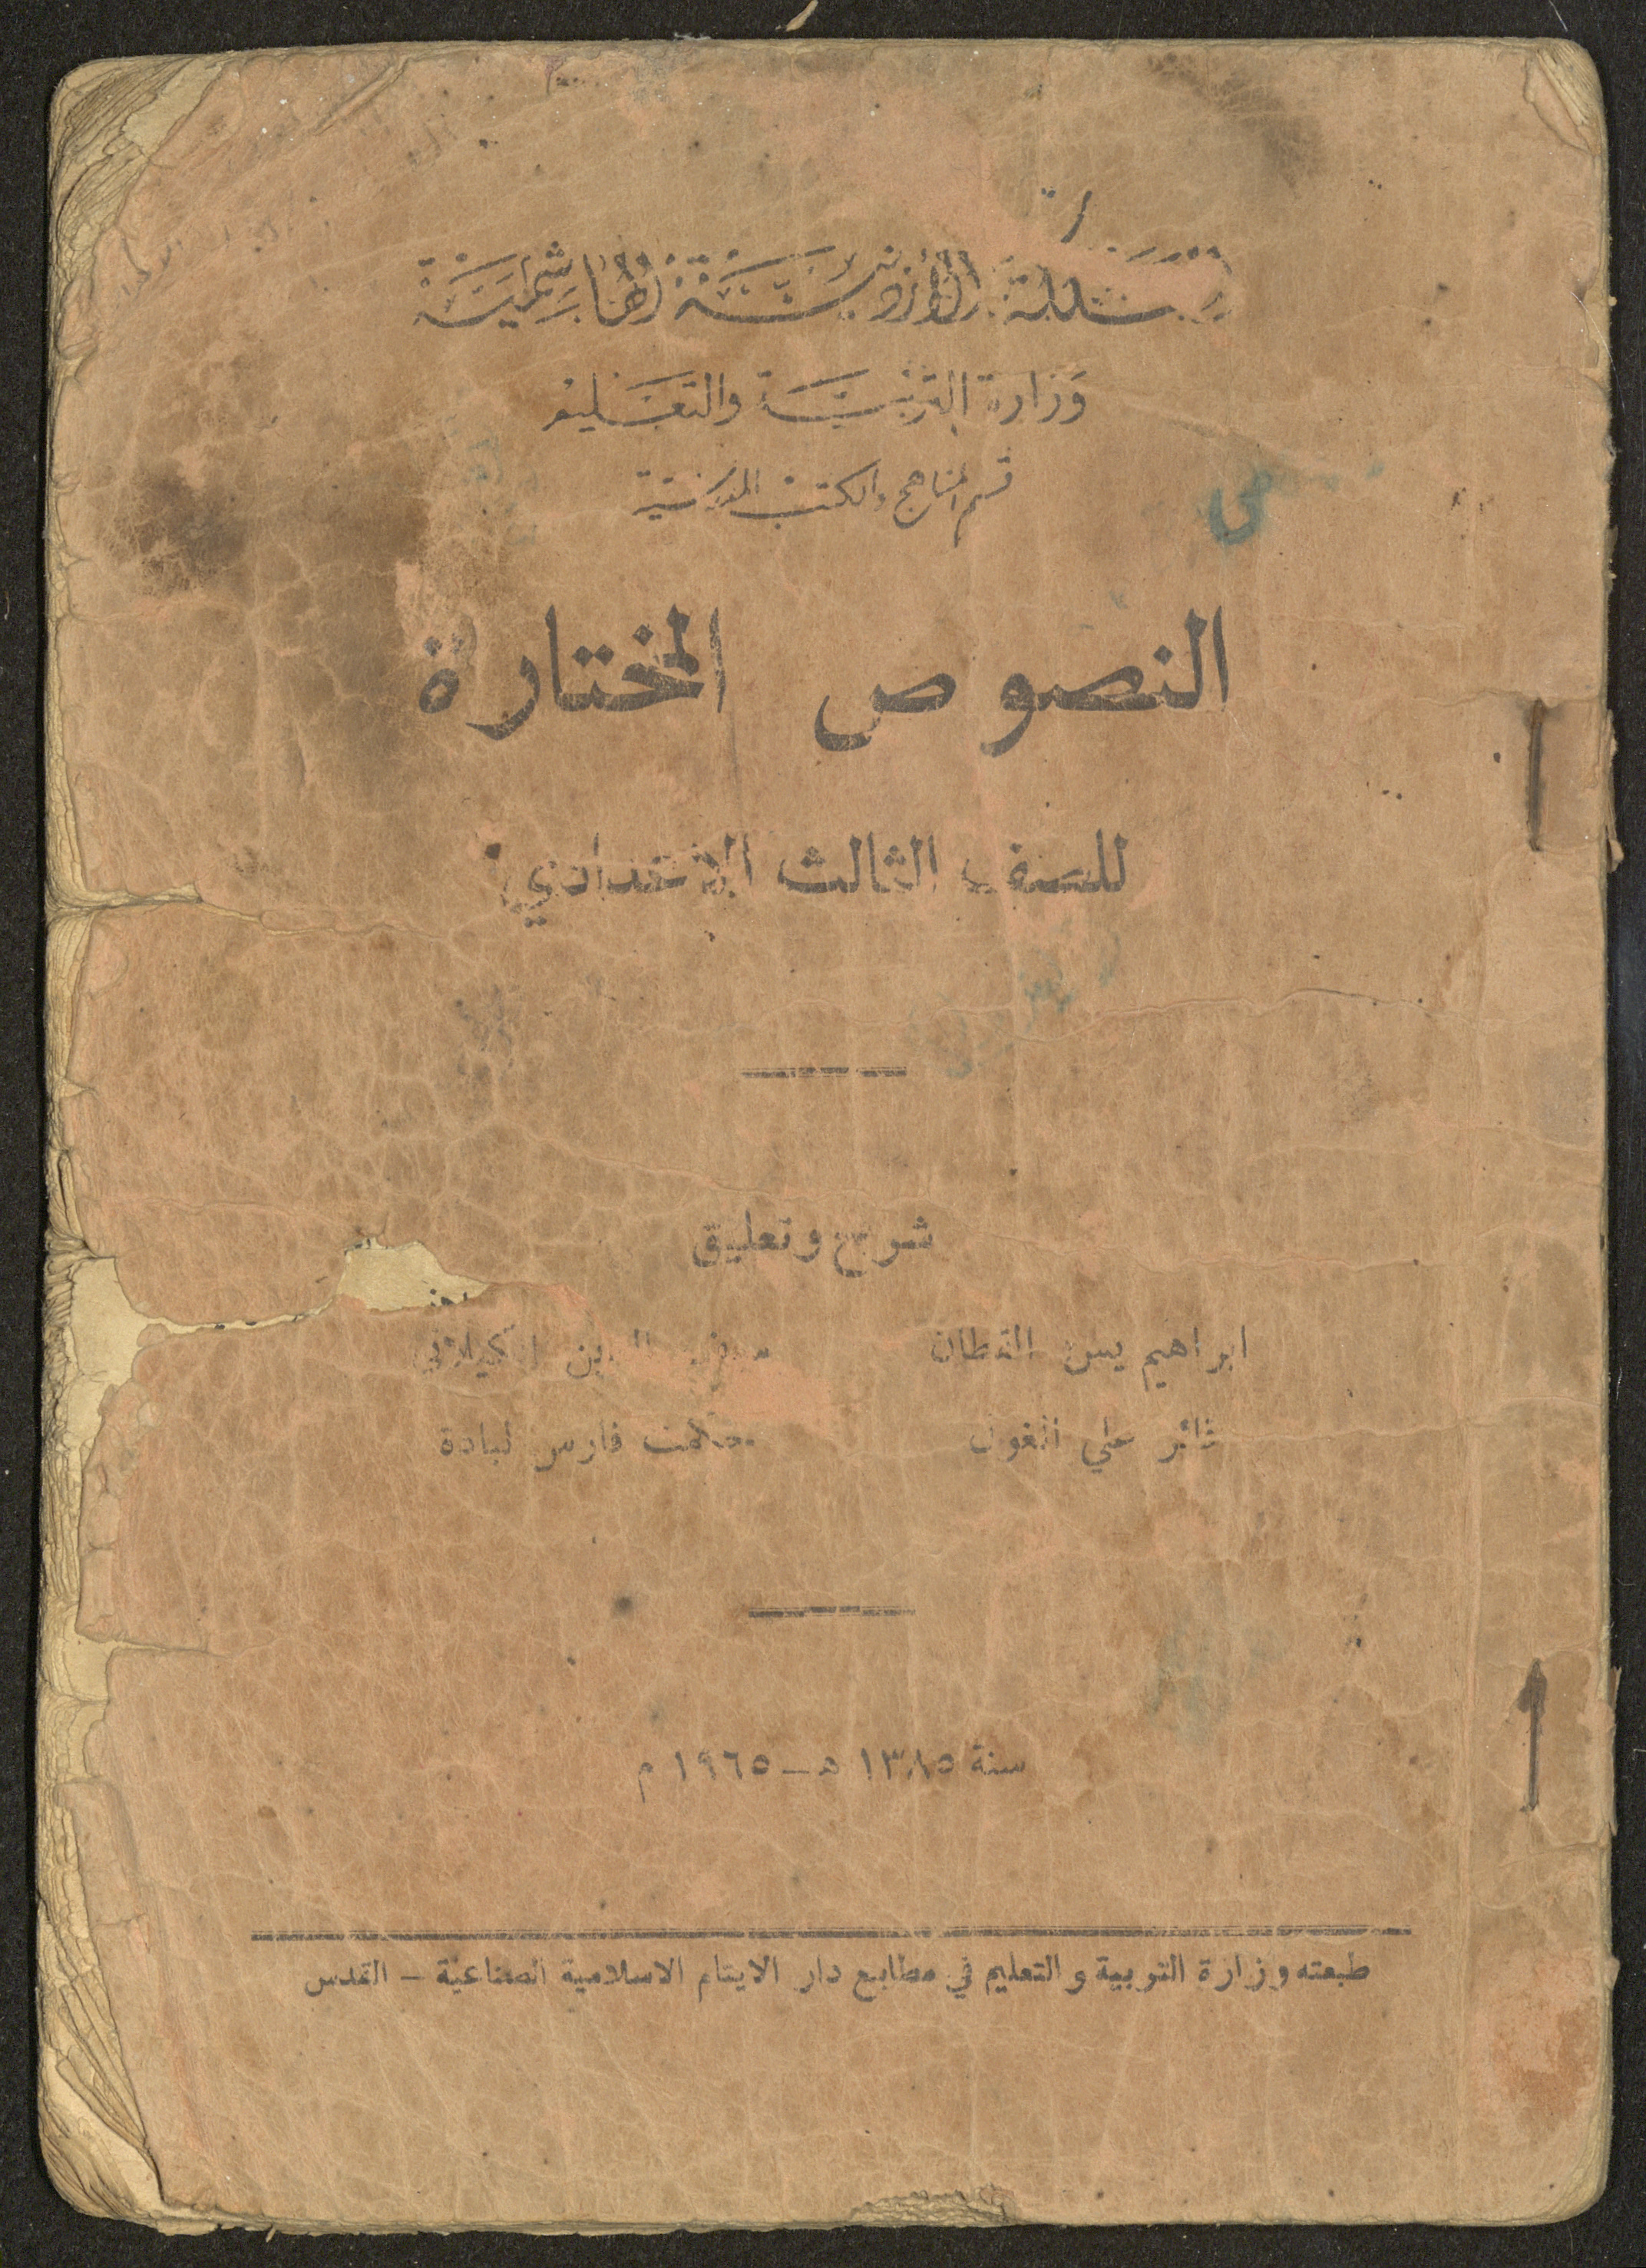 المملكة الأردنية الهاشمية
وزارة التربية والتعليم
قسم المناهج والكتب المدرسية
النصوص المختارة
للصف الثالث الاعدادي
شرح وتعليق
ابراهيم يسن القطان
الدين الكيلاني
ثائر علي الغول
فارس لبادة
سنة ١٣٨٥ هـ - ١٩٦٥ م
طبعته وزارة التربية والتعليم في مطابع دار الايتام الاسلامية الصناعية - القدس